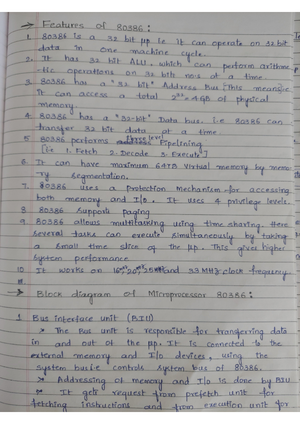 → Features of 80386 :
1. 80386 is a 32 bit μp i.e it can operate on 32 bit
data in one machine cycle.
2. It has 32 bit ALU, which can perform arithme
-tic operations on 32 bits no.s at a time.
3. 80386 has a "32 bit" Address Bus. This means
it can access a total 2³² = 4GB of physical
memory.
4. 80386 has a "32-bit" Data bus. i.e 80386 can
transfer 32 bit data at a time.
5. 80386 performs three level Pipelining
[i.e 1. Fetch 2. Decode 3. Execute]
6. It can have maximum 64TB Virtual memory by memo
ry segmentation.
7. 80386 uses a protection mechanism for accessing
both memory and I/o. It uses 4 privilege levels.
8. 80386 supports paging
9. 80386 allows multitasking using time sharing. Here
several tasks can execute simultaneously by taking
a small time slice of the μp. This gives higher
system performance
10. It works on 16, 20, 25 and 33 MHz clock frequency
→ Block diagram of Microprocessor 80386 :
1 Bus interface unit (BIU)
> The Bus unit is responsible for transferring data
in and out of the μp. It is connected to the
external memory and I/o devices, using the
system bus i.e controls system bus of 80386.
> Addressing of memory and I/o is done by BIU
It gets request from prefetch unit for
fetching instructions and from execution unit for